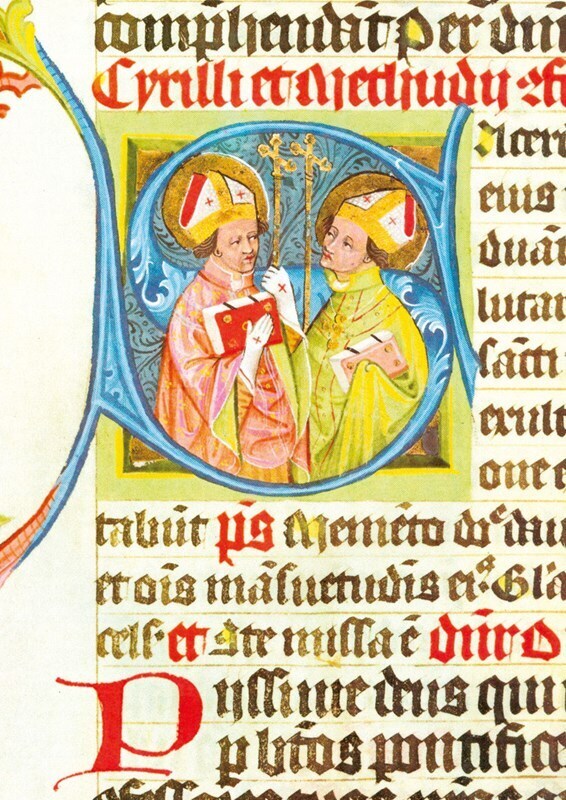 comp̄hendāt Per dn̄m
Cyrilli et Methudij
acerd
eius
duāt
lutar
sācti
exult
one
tabūt p̄s Memēto dn̄e dau
et oīs māsuetudīs eiꝰ Gl̄a
celsꝭ et Ite missa ē dn̄ro
Pijssime deus qui
p bt̄os pontifice